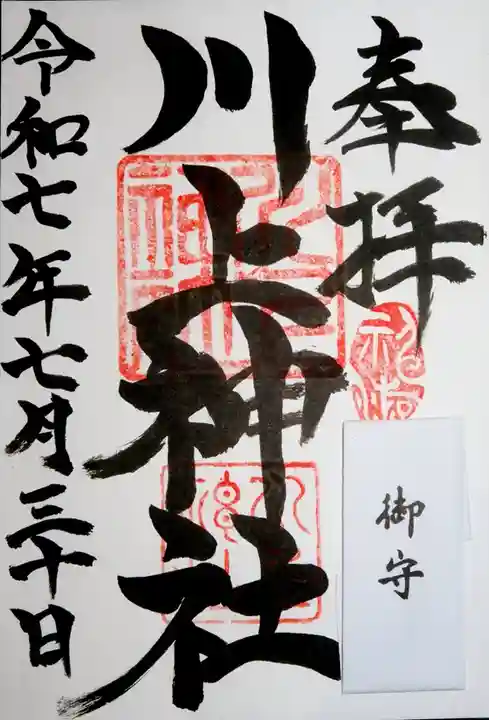 奉拝
川上神社
令和七年七月三十日
御守